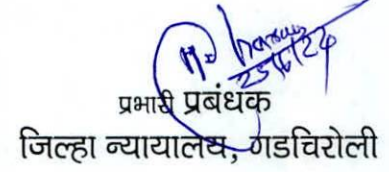 प्रभारी प्रबंधक
जिल्हा न्यायालय, गडचिरोली